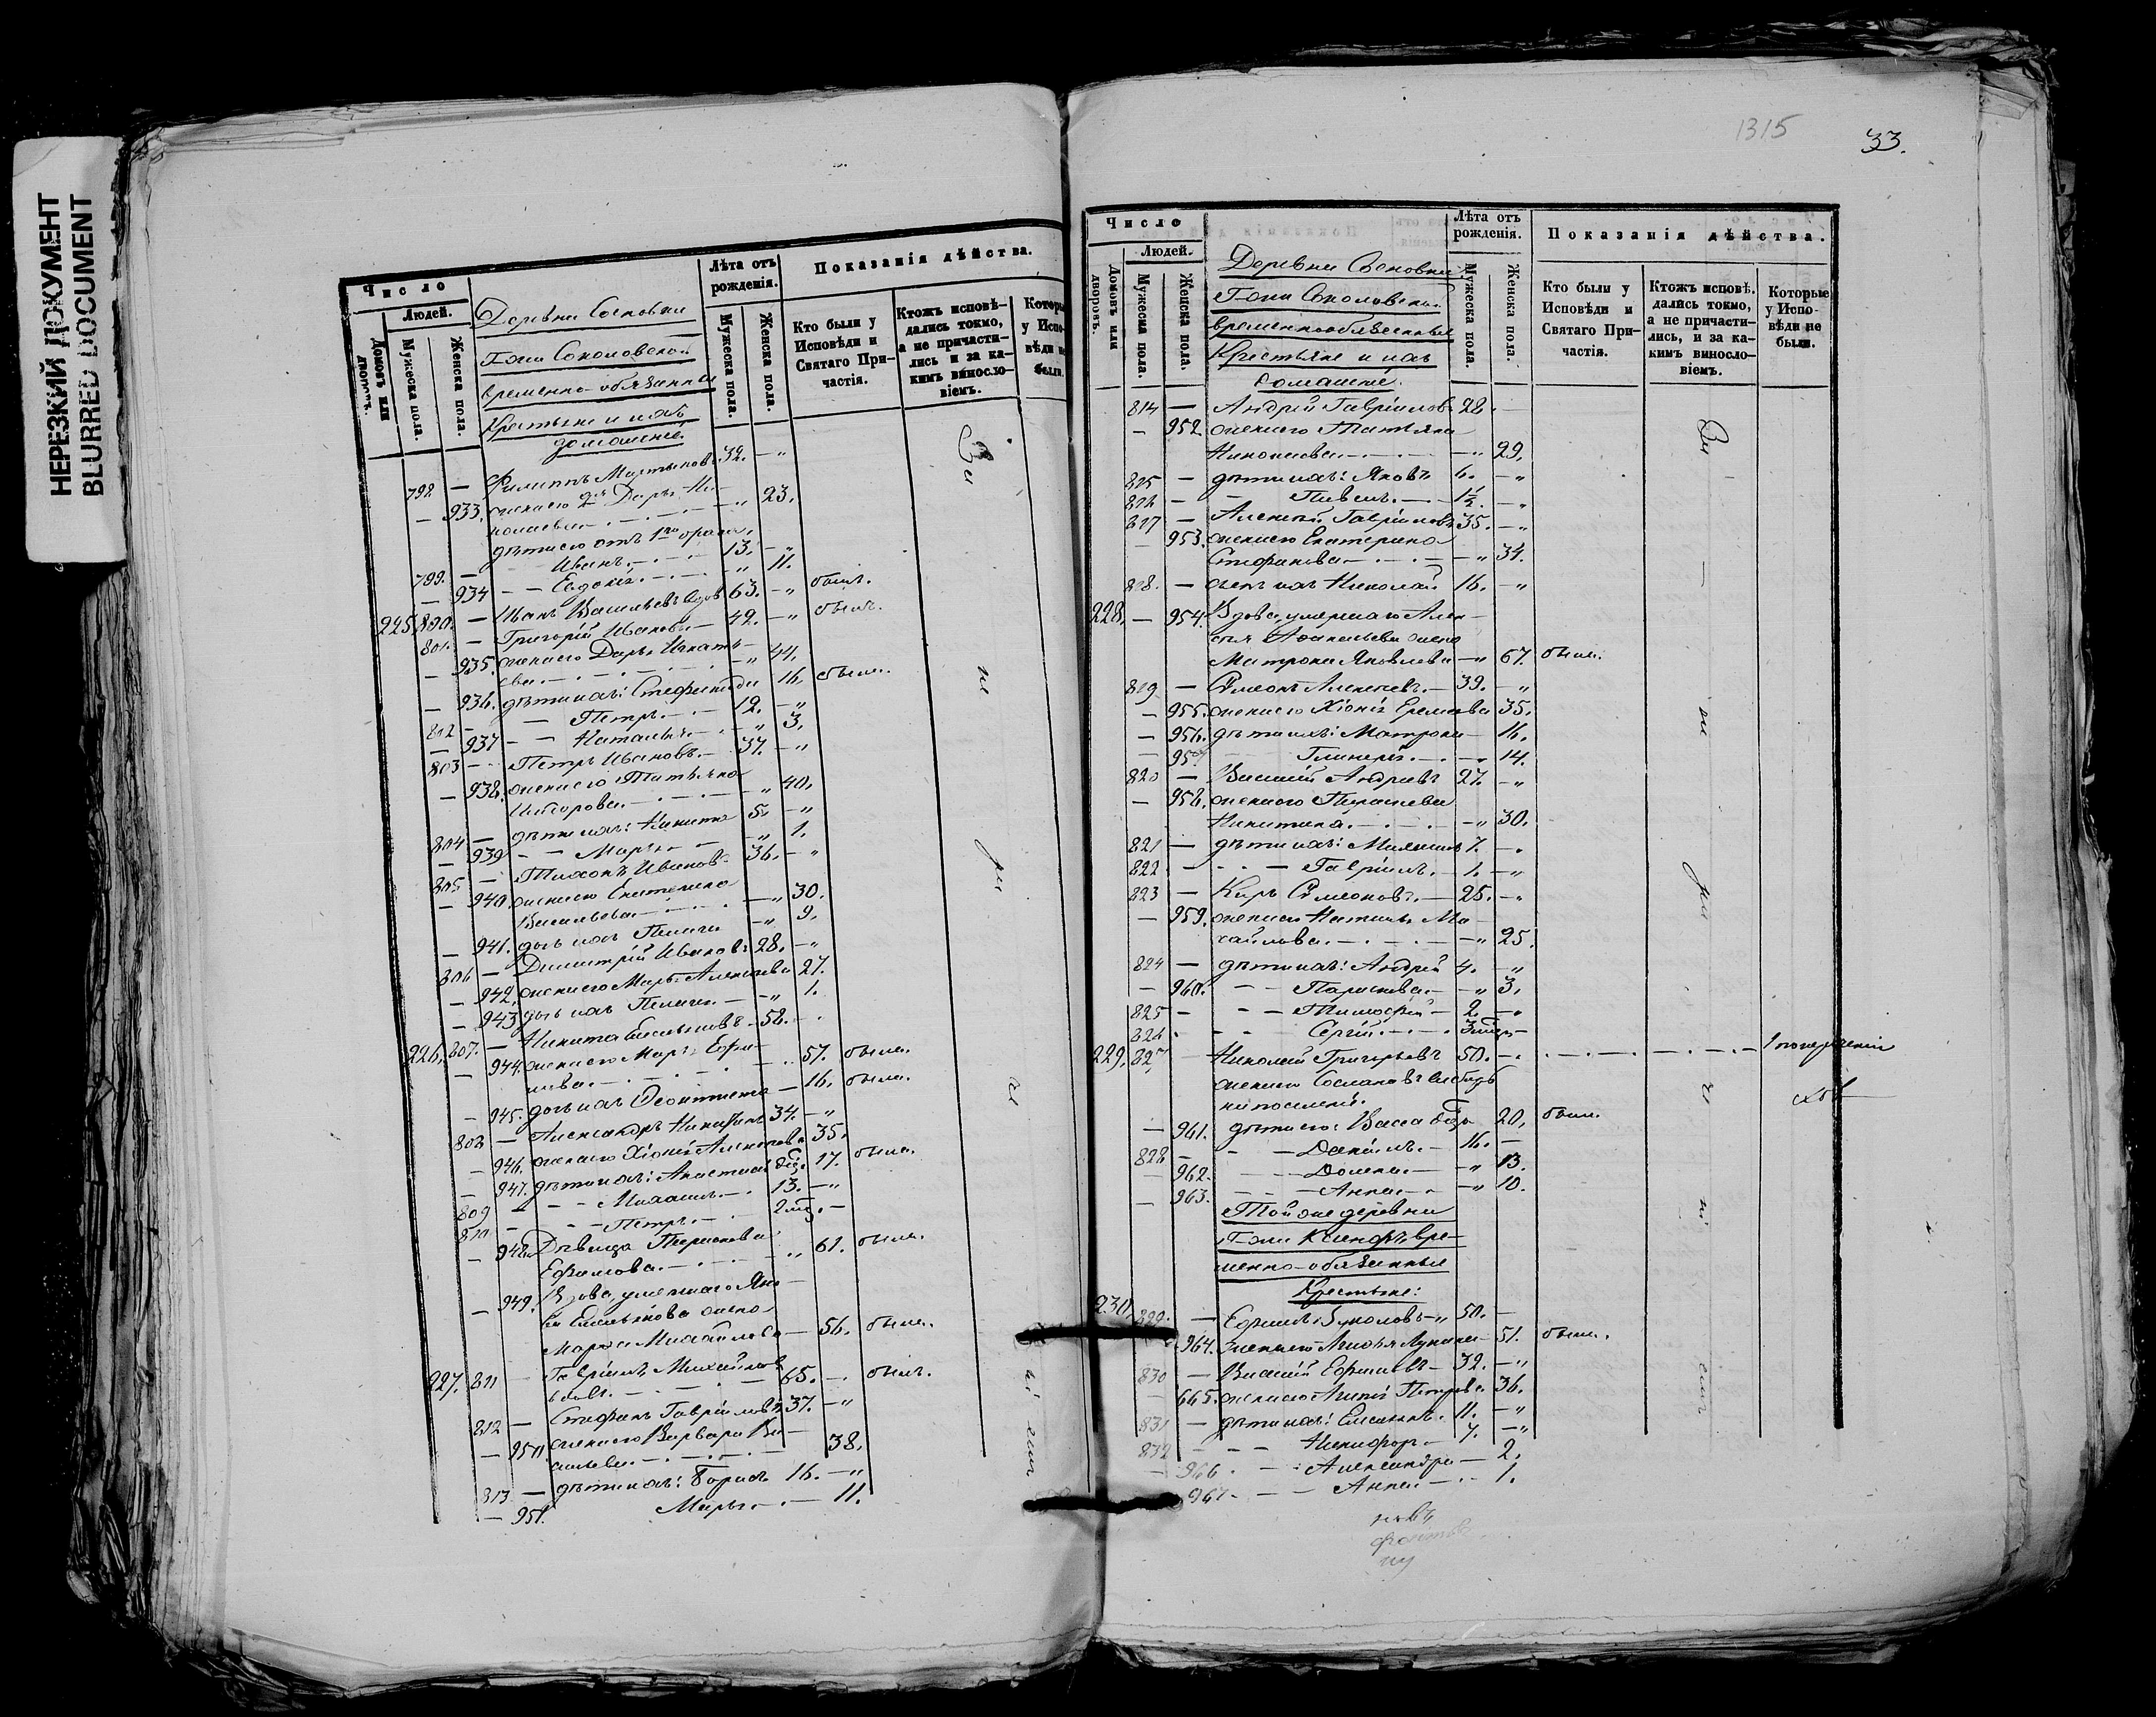 НЕРЕЗКИЙ ДОКУМЕНТ
BLURRED DOCUMENT
Число
Людей.
Домовъ или дворовъ.
Мужеска пола.
Женска пола.
Деревни Сосновки
Г-жи Соколовской
временно-обязанные
Крестьяне и ихъ
домашние.
Лѣта отъ рожденія.
Мужеска пола.
Женска пола.
Показанія дѣйства.
Кто были у Исповѣди и Святаго Причастія.
Ктожъ исповѣдались токмо, а не причастились и за какимъ винословіемъ.
Которы у Испо вѣди не были.
798 — Филиппъ 32. — "
— 933. жена его 2я Дарья Ни-
колаева — " 23.
дѣти его отъ 1го брака:
799. — Иванъ 13. — "
— 934 — Евдокія — " 11.
225. 800. — Иванъ Васильевъ вдов 63. — " былъ.
801. — Григорій Ивановъ — 42. — " былъ.
— 935. жена его Дарья Игнать-
ева — " 44.
— 936. дѣти ихъ: Стефанида 16. была.
802 — Петръ 12. — "
— 937 — Наталья — " 3.
803 — Петръ Ивановъ 37. — "
— 938. жена его Татьяна
— " 40.
804 — дѣти ихъ: Никита 5. — "
— 939 — Марья — " 1.
805 — Тихонъ Ивановъ 36. — "
— 940. жена его Екатерина
Васильева — " 30.
— 941. дочь ихъ Пелагея — " 9.
806 — Димитрій Ивановъ 28. — "
— 942. жена его Марья Алексеева 27.
— 943 дочь ихъ Пелагея — " 1.
226. 807. — Никита Емельяновъ 58. —
— 944. жена его Марья Ефи-
мова 57. была.
— 945. дочь ихъ Феоктиста — 16. была.
808 — Александръ Никитинъ 34. — "
— 946. жена его Хіонія Алексеева 35.
— 947. дѣти ихъ: Анастасія 17. была.
809 — Михаилъ 13. — "
810 — Петръ 2 мѣс. —
— 948. Дѣвица Парасковья
Ефимова " 61. была.
— 949. Вдова, умершаго Яко-
ва Емельянова жена
Марѳа Михайлова — 56. была.
227. 811 — Гавріилъ Михайловъ
вдовъ 65. — былъ.
812 — Стефанъ Гавріиловъ 37. — "
— 950. жена его Варвара Ва-
сильева — 38.
813 — дѣти ихъ: Борисъ 16. — "
— 951. Марья — 11.
За
не
ра
че
ні
емъ
1315
33.
Число
Людей.
Домовъ или дворовъ.
Мужеска пола.
Женска пола.
Деревни Сосновки
Г-жи Соколовской
временнообязанные
Крестьяне и ихъ
домашние.
Лѣта отъ рожденія.
Мужеска пола.
Женска пола.
Показанія дѣйства.
Кто были у Исповѣди и Святаго Причастія.
Ктожъ исповѣдались токмо, а не причастились, и за какимъ винословіемъ.
Которые у Исповѣди не были.
814 — Андрей Гавріиловъ 28. —
— 952 жена его Татьяна
Николаева — " 29.
815 — дѣти ихъ: Яковъ 6. — "
816 — Павелъ 1½. — "
817 — Алексѣй Гавріиловъ 35. — "
— 953. жена его Екатерина
Стефанова — " 34.
818. — сынъ ихъ Николай 16. — "
228. — 954. Вдова, умершаго Алек-
сѣя жена
Матрона Яковлева — " 67. была.
819 — Сѵмеонъ Алексеевъ 39. — "
— 955. жена его Хіонія Еремеева 35.
— 956. дѣти ихъ: Матрона — 16.
— 957 Гликерія — 14.
820 — Василій Андреевъ 27. — "
— 958. жена его Парасковья
Никитина — " 30.
821 — дѣти ихъ: Михаилъ 7. — "
822 — Гавріилъ 1. — "
823 — Киръ Сѵмеоновъ 25. — "
— 959. жена его Наталья Ми-
хайлова — " 25.
824 — дѣти ихъ: Андрей 4. — "
— 960. — Парасковья — " 3.
825 — Тимоѳей 2. — "
826 — Сергій 3 мѣс. —
229. 827 — Николай Григорьевъ 50. —
жена его
на поселеніе.
— 961. дѣти его: Васса 20. была.
828 — Даніилъ 16. —
— 962. Домна — " 13.
— 963. — Анна — " 10.
Той же деревни
Г-жи вре-
менно-обязанные
Крестьяне:
230. 829. — Ефимъ 50. —
— 964. жена его Лукина 51. была.
830 — Василій Ефимовъ 32. — "
— 665. жена его Петрова 36.
831 — дѣти ихъ: 11. — "
832 — Никифоръ 7. — "
— 966. — Александра — 2.
— 967 — Анна — 1.
За
не
ра
че
ні
емъ